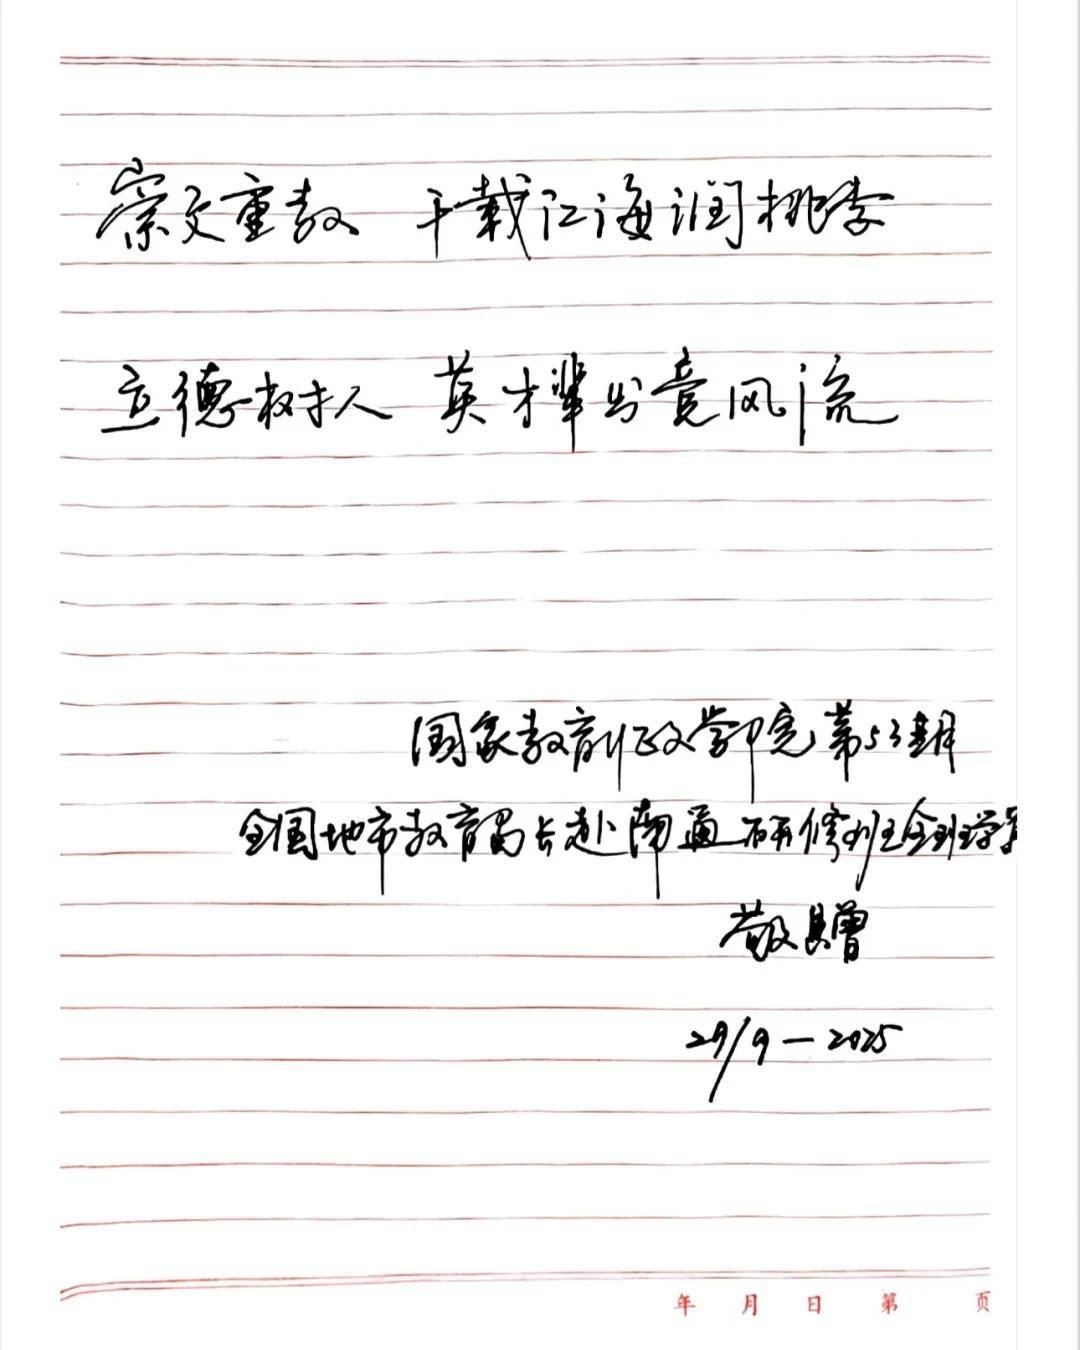 崇文重教 千载江海润桃李
立德树人 英才辈出竞风流
国家教育行政学院第53期
全国地市教育局长赴南通研修班全班学
敬赠
29/9—2025
年 月 日 第 页